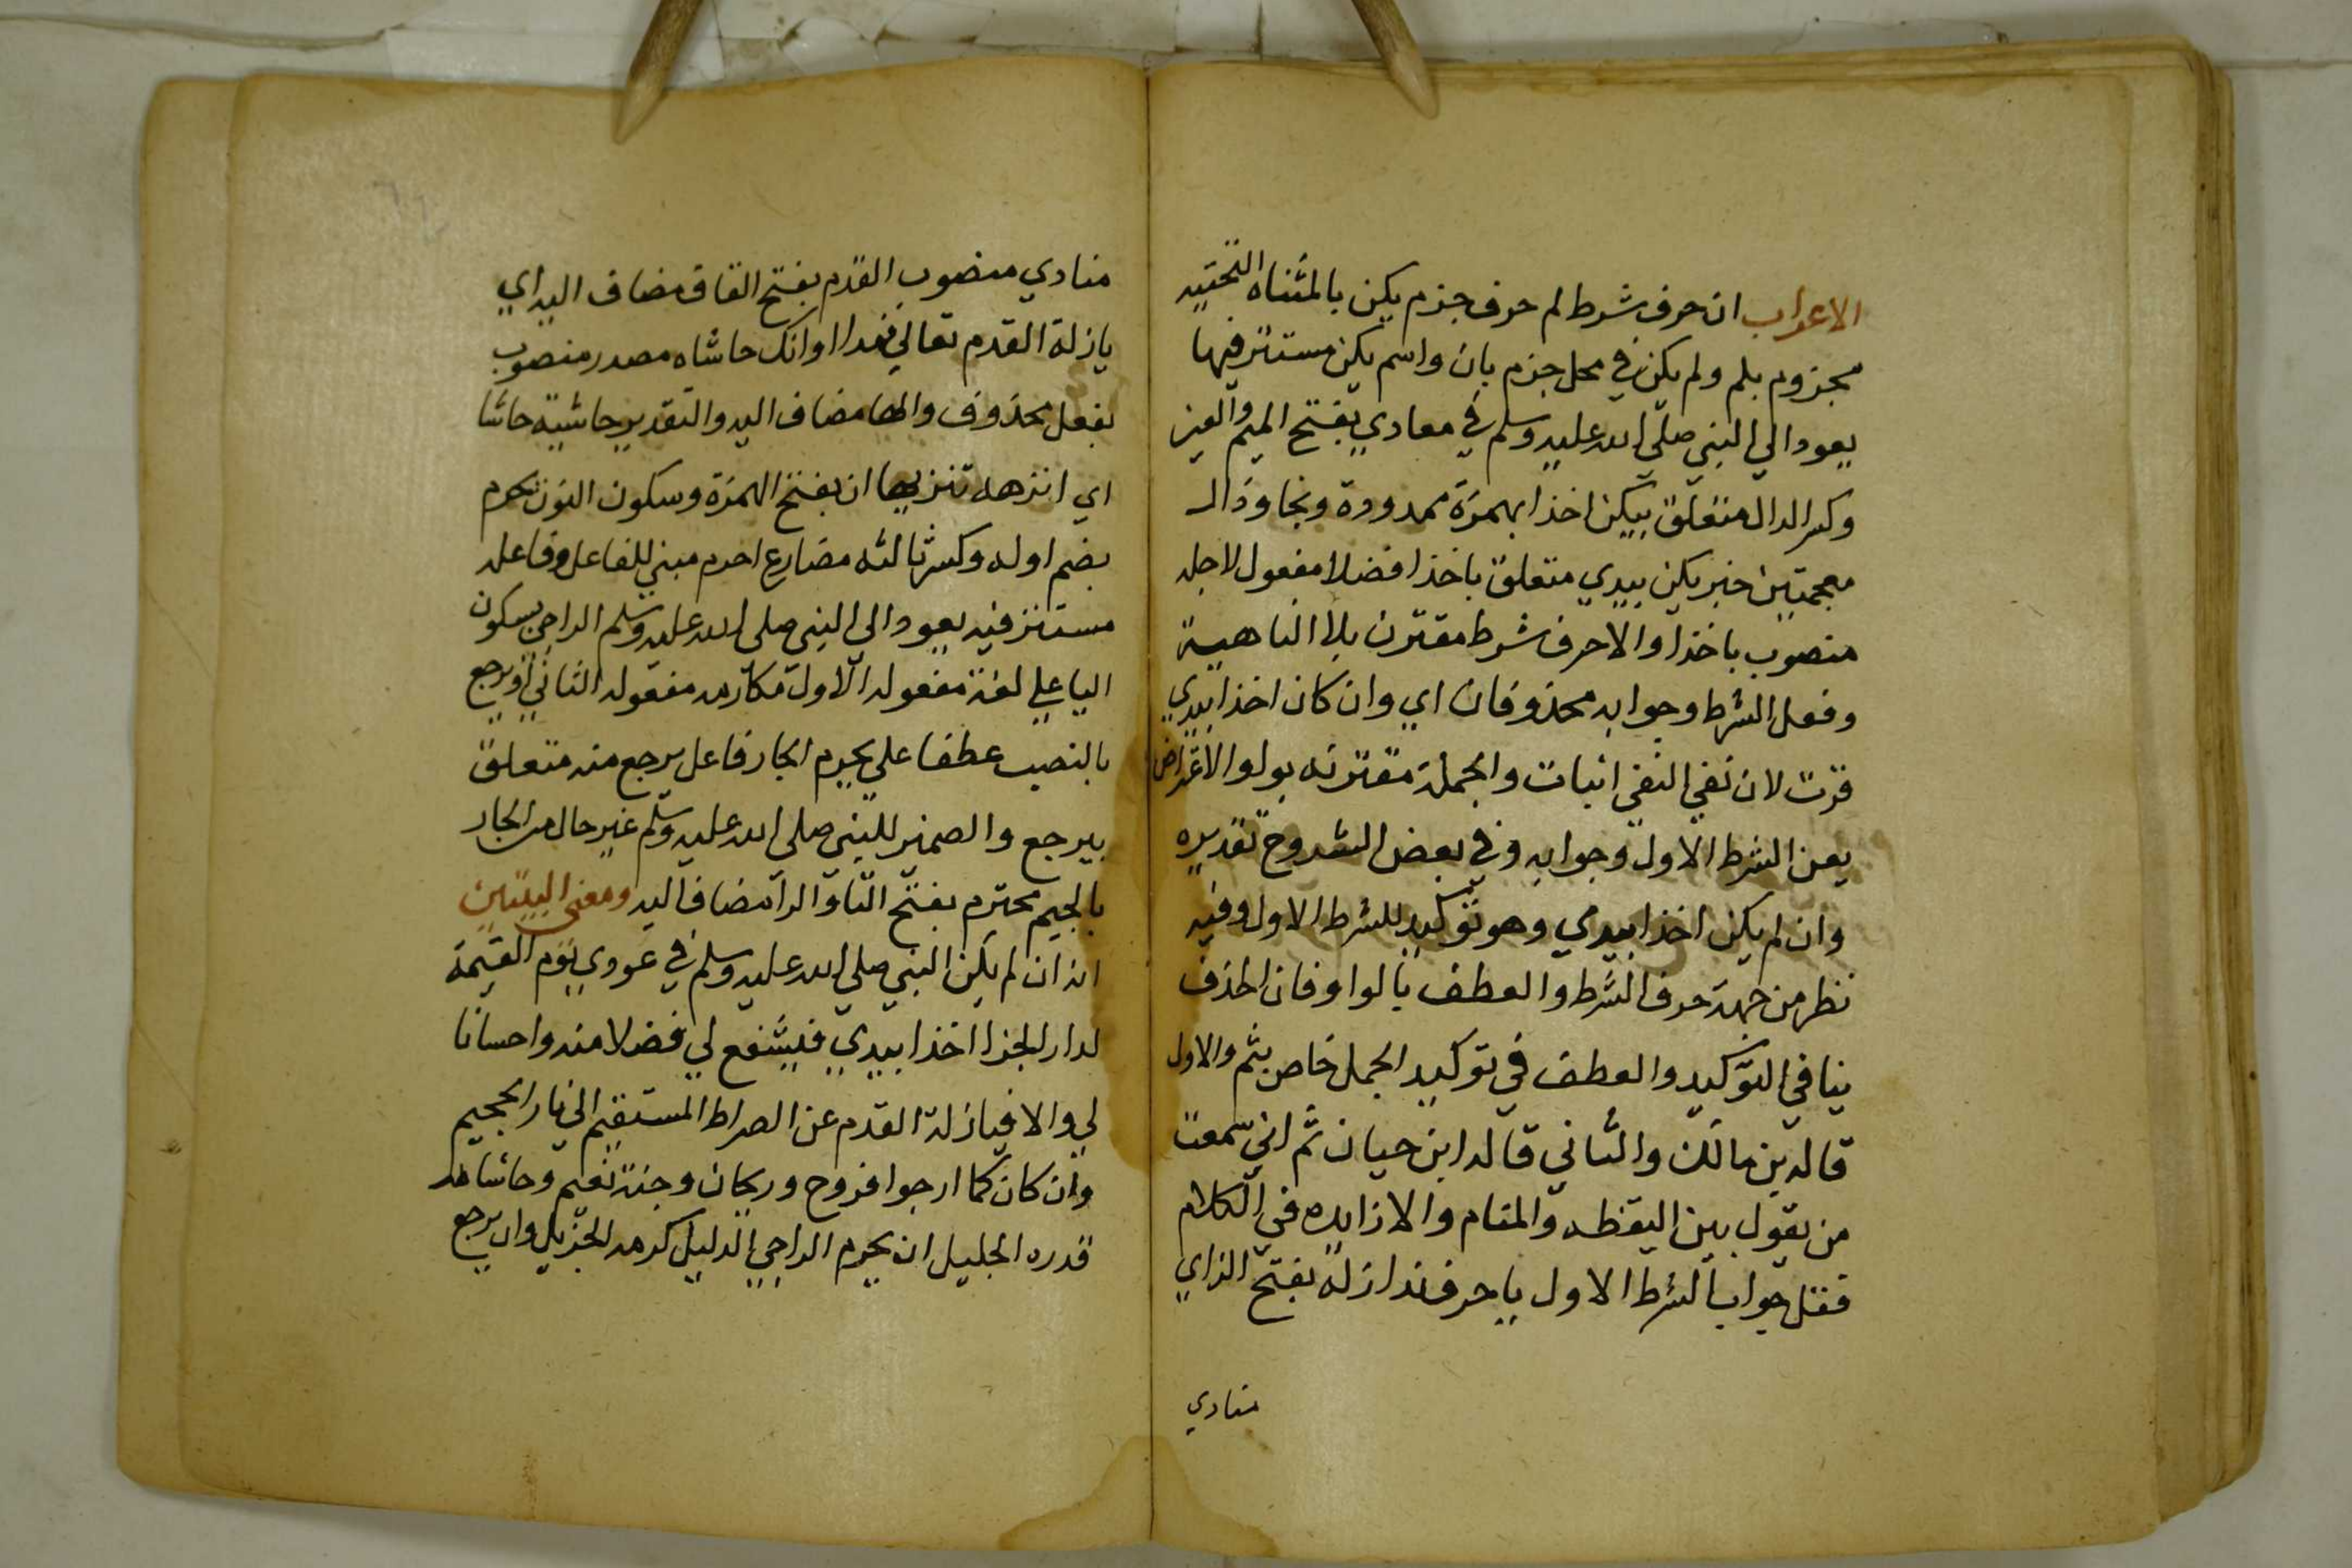 الاعراب ان حرف شرط لم حرف جزم يكن بالمثناه التحتيه
مجزوم بلم ولم يكن في محل جزم بان واسم يكن مستتر فيها
يعود الي النبي صلي الله عليه وسلم في معادي بفتح الميم والعين
وكسر الدال متعلق بيكن اخذا بهمزة ممدودة ونجا وذال
معجمتين خبر يكن بيدي متعلق باخذا فضلا مفعول لاجله
منصوب باخذا والا حرف شرط مقترن بلا الناهية
وفعل الشرط وجوابه محذوفان اي وان كان اخذا بيدي
فزت لان نفي النفي اثبات والجملة مقترنه بواو الاعتراض
يعن الشرط الاول وجوابه وفي بعض الشروح تقديره
وان لم يكن اخذا بيدي وهو توكيد للشرط الاول وفيه
نظر من جهة حرف الشرط والعطف بالواو فان الحذف
ينافي التوكيد والعطف في توكيد الجمل خاص بثم والاول
قاله بن مالك والثاني قاله ابن حيان ثم اني سمعت
من يقول بين اليقظه والمنام والا زايده في الكلام
فقل جواب الشرط الاول يا حرف ندا زلة بفتح الزاي
منادي
منادي منصوب القدم بفتح القاف مضاف اليه اي
يا زلة القدم تعالي فهذا اوانك حاشاه مصدر منصوب
بفعل محذوف والها مضاف اليه والتقدير حاشيته حاشا
اي انزهه تنزيها ان بفتح الهمزة وسكون النون يحرم
بضم اوله وكسر ثالثه مضارع احرم مبني للفاعل وفاعله
مستتر فيه يعود الي النبي صلي الله عليه وسلم الراجي بسكون
اليا علي لغة مفعوله الاول مكارمه مفعوله الثاني او يرجع
بالنصب عطفا علي يحرم الجار فاعل يرجع منه متعلق
بيرجع والضمير للنبي صلي الله عليه وسلم غير حال من الجار
بالجيم محترم بفتح التا والرا مضاف اليه ومعني البيتين
انه ان لم يكن النبي صلي الله عليه وسلم في عودي يوم القيمة
لدار الجزا اخذا بيدي فيشفع لي فضلا منه واحسانا
لي والا فيا زلة القدم عن الصراط المستقيم الي نار الجحيم
وان كان كما ارجوا فروح وريحان وجنة نعيم وحاشا
قدره الجليل ان يحرم الراجي الذليل كرمه الجزيل وان يرجع